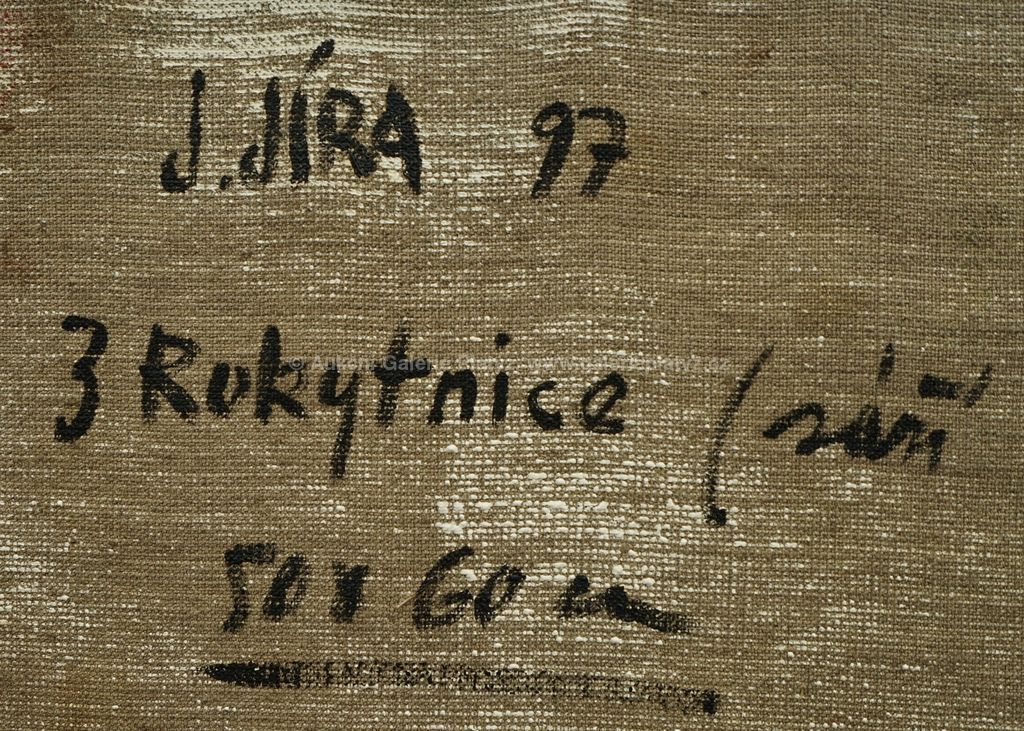 J. JÍRA 97
3 Rokytnice (září
50 x 60 cm